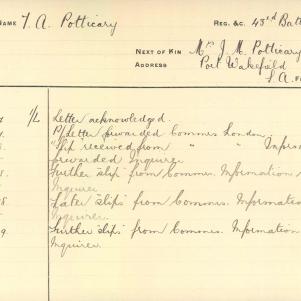 NAME T. A. Potticary REG. &C. 43rd Batt
NEXT OF KIN Mr J. M. Potticary
ADDRESS Port Wakefield
S.A.
Letter acknowledged.
Letter forwarded Commrs London.
"Slip received from " " Inform
forwarded Inquirer.
Further "slip" from Commrs. Information
Inquirer.
Later "slips" from Commrs. Informati
Inquirer.
Further "slips" from Commrs. Information
Inquirer.